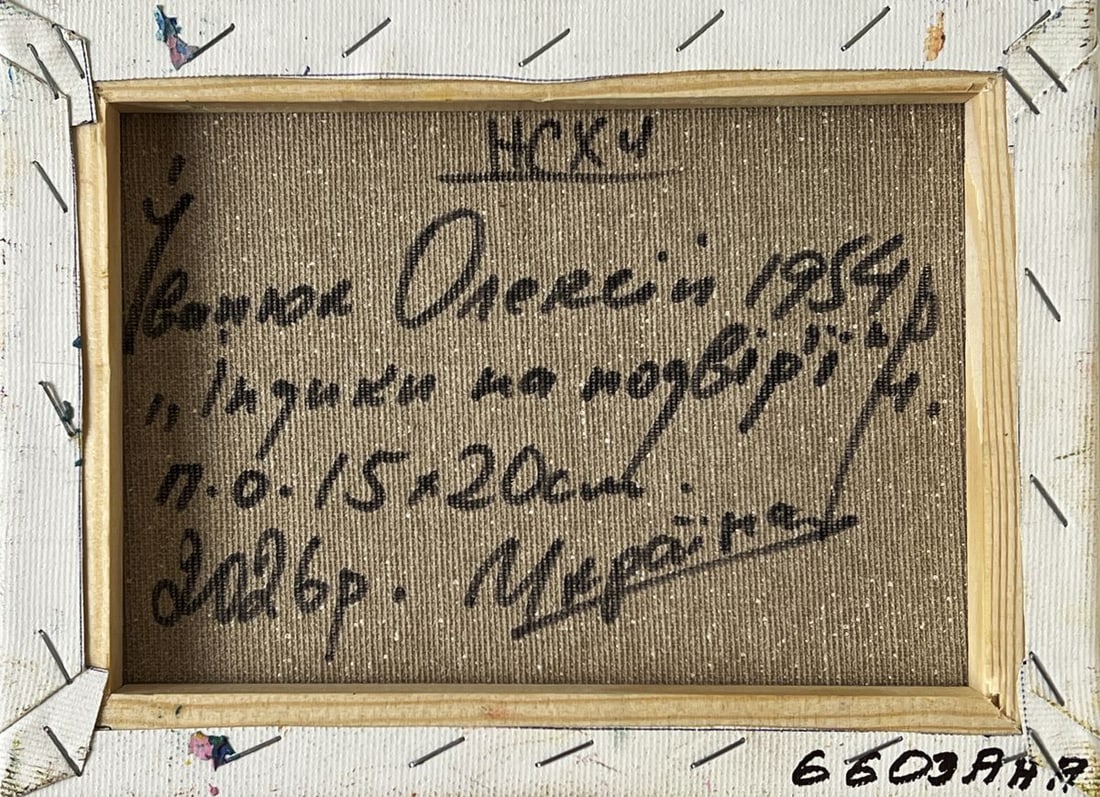 НСХУ
Іванюк Олексій 1954 р.н.
"Індики на подвір'ї"
п.о. 15x20см.
2026р. Україна
6603Ян.А